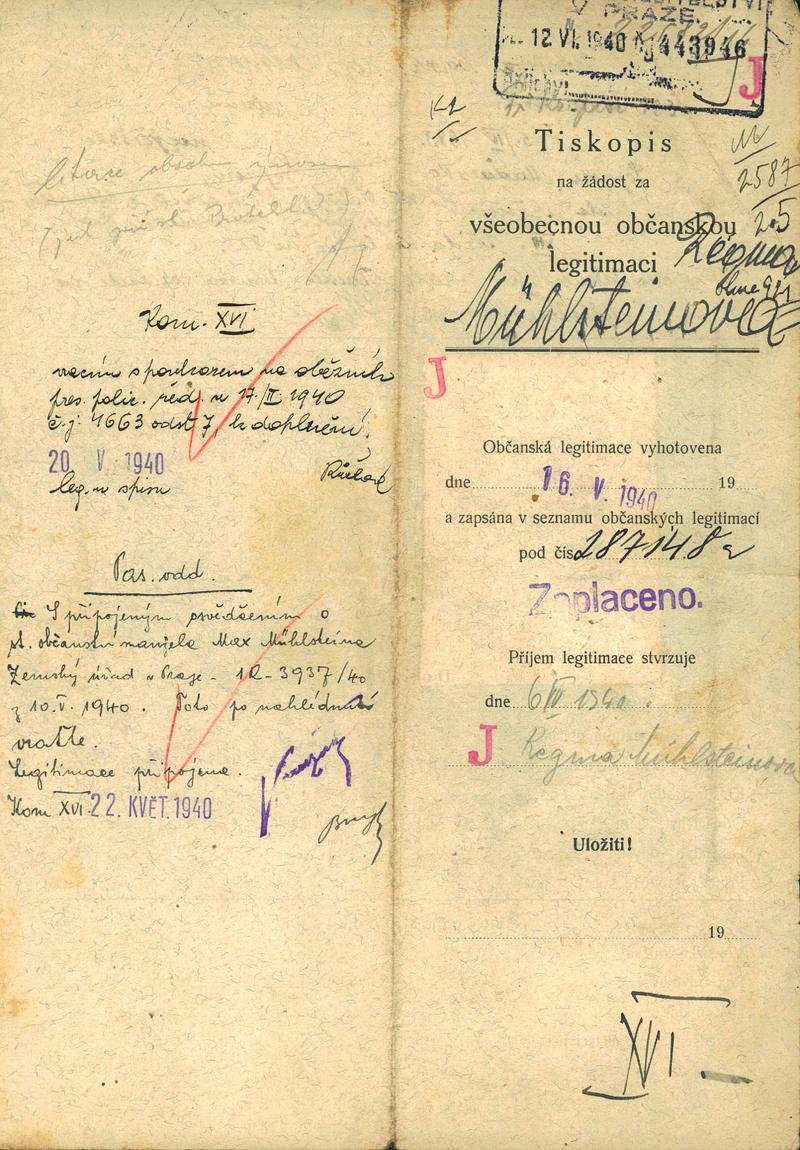 Kom. XVI
vracím s poukazem na oběžník
pres. polic. řed. z 17/II 1940
č.j. 4663 odst 7, k doplnění.
20 V. 1940
leg. ve spisu
Pas. odd.
S připojeným svědčením o
st. občanství manžela Max Mühlsteina
Zemský úřad v Praze - 1R-3937/40
z 10.V. 1940. Toto po nahlédnutí
vraťte.
Legitimace připojena.
Kom XVI. 22. KVĚT. 1940
V PRAZE.
12 VI. 1940 443946
J
Tiskopis
na žádost za
2587
všeobecnou občanskou 25
legitimaci Regina
Mühlsteinová
J
Občanská legitimace vyhotovena
dne 16. V. 1940 19
a zapsána v seznamu občanských legitimací
pod čís. 287148
Zaplaceno.
Příjem legitimace stvrzuje
dne 6/VI 1940.
J Regina Mühlsteinova
Uložiti!
19
XVI